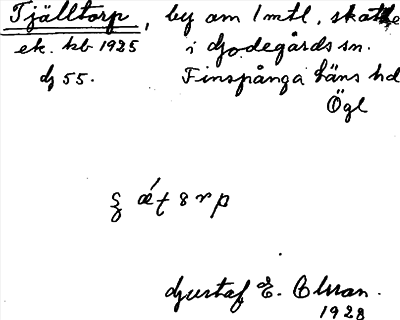 Tjälltorp, by om 1 mtl, skatte
ek. kb 1925 i Godegårds sn.
dj 55. Finspånga läns hd
Ögl
Gustaf E. Olsson.
1928